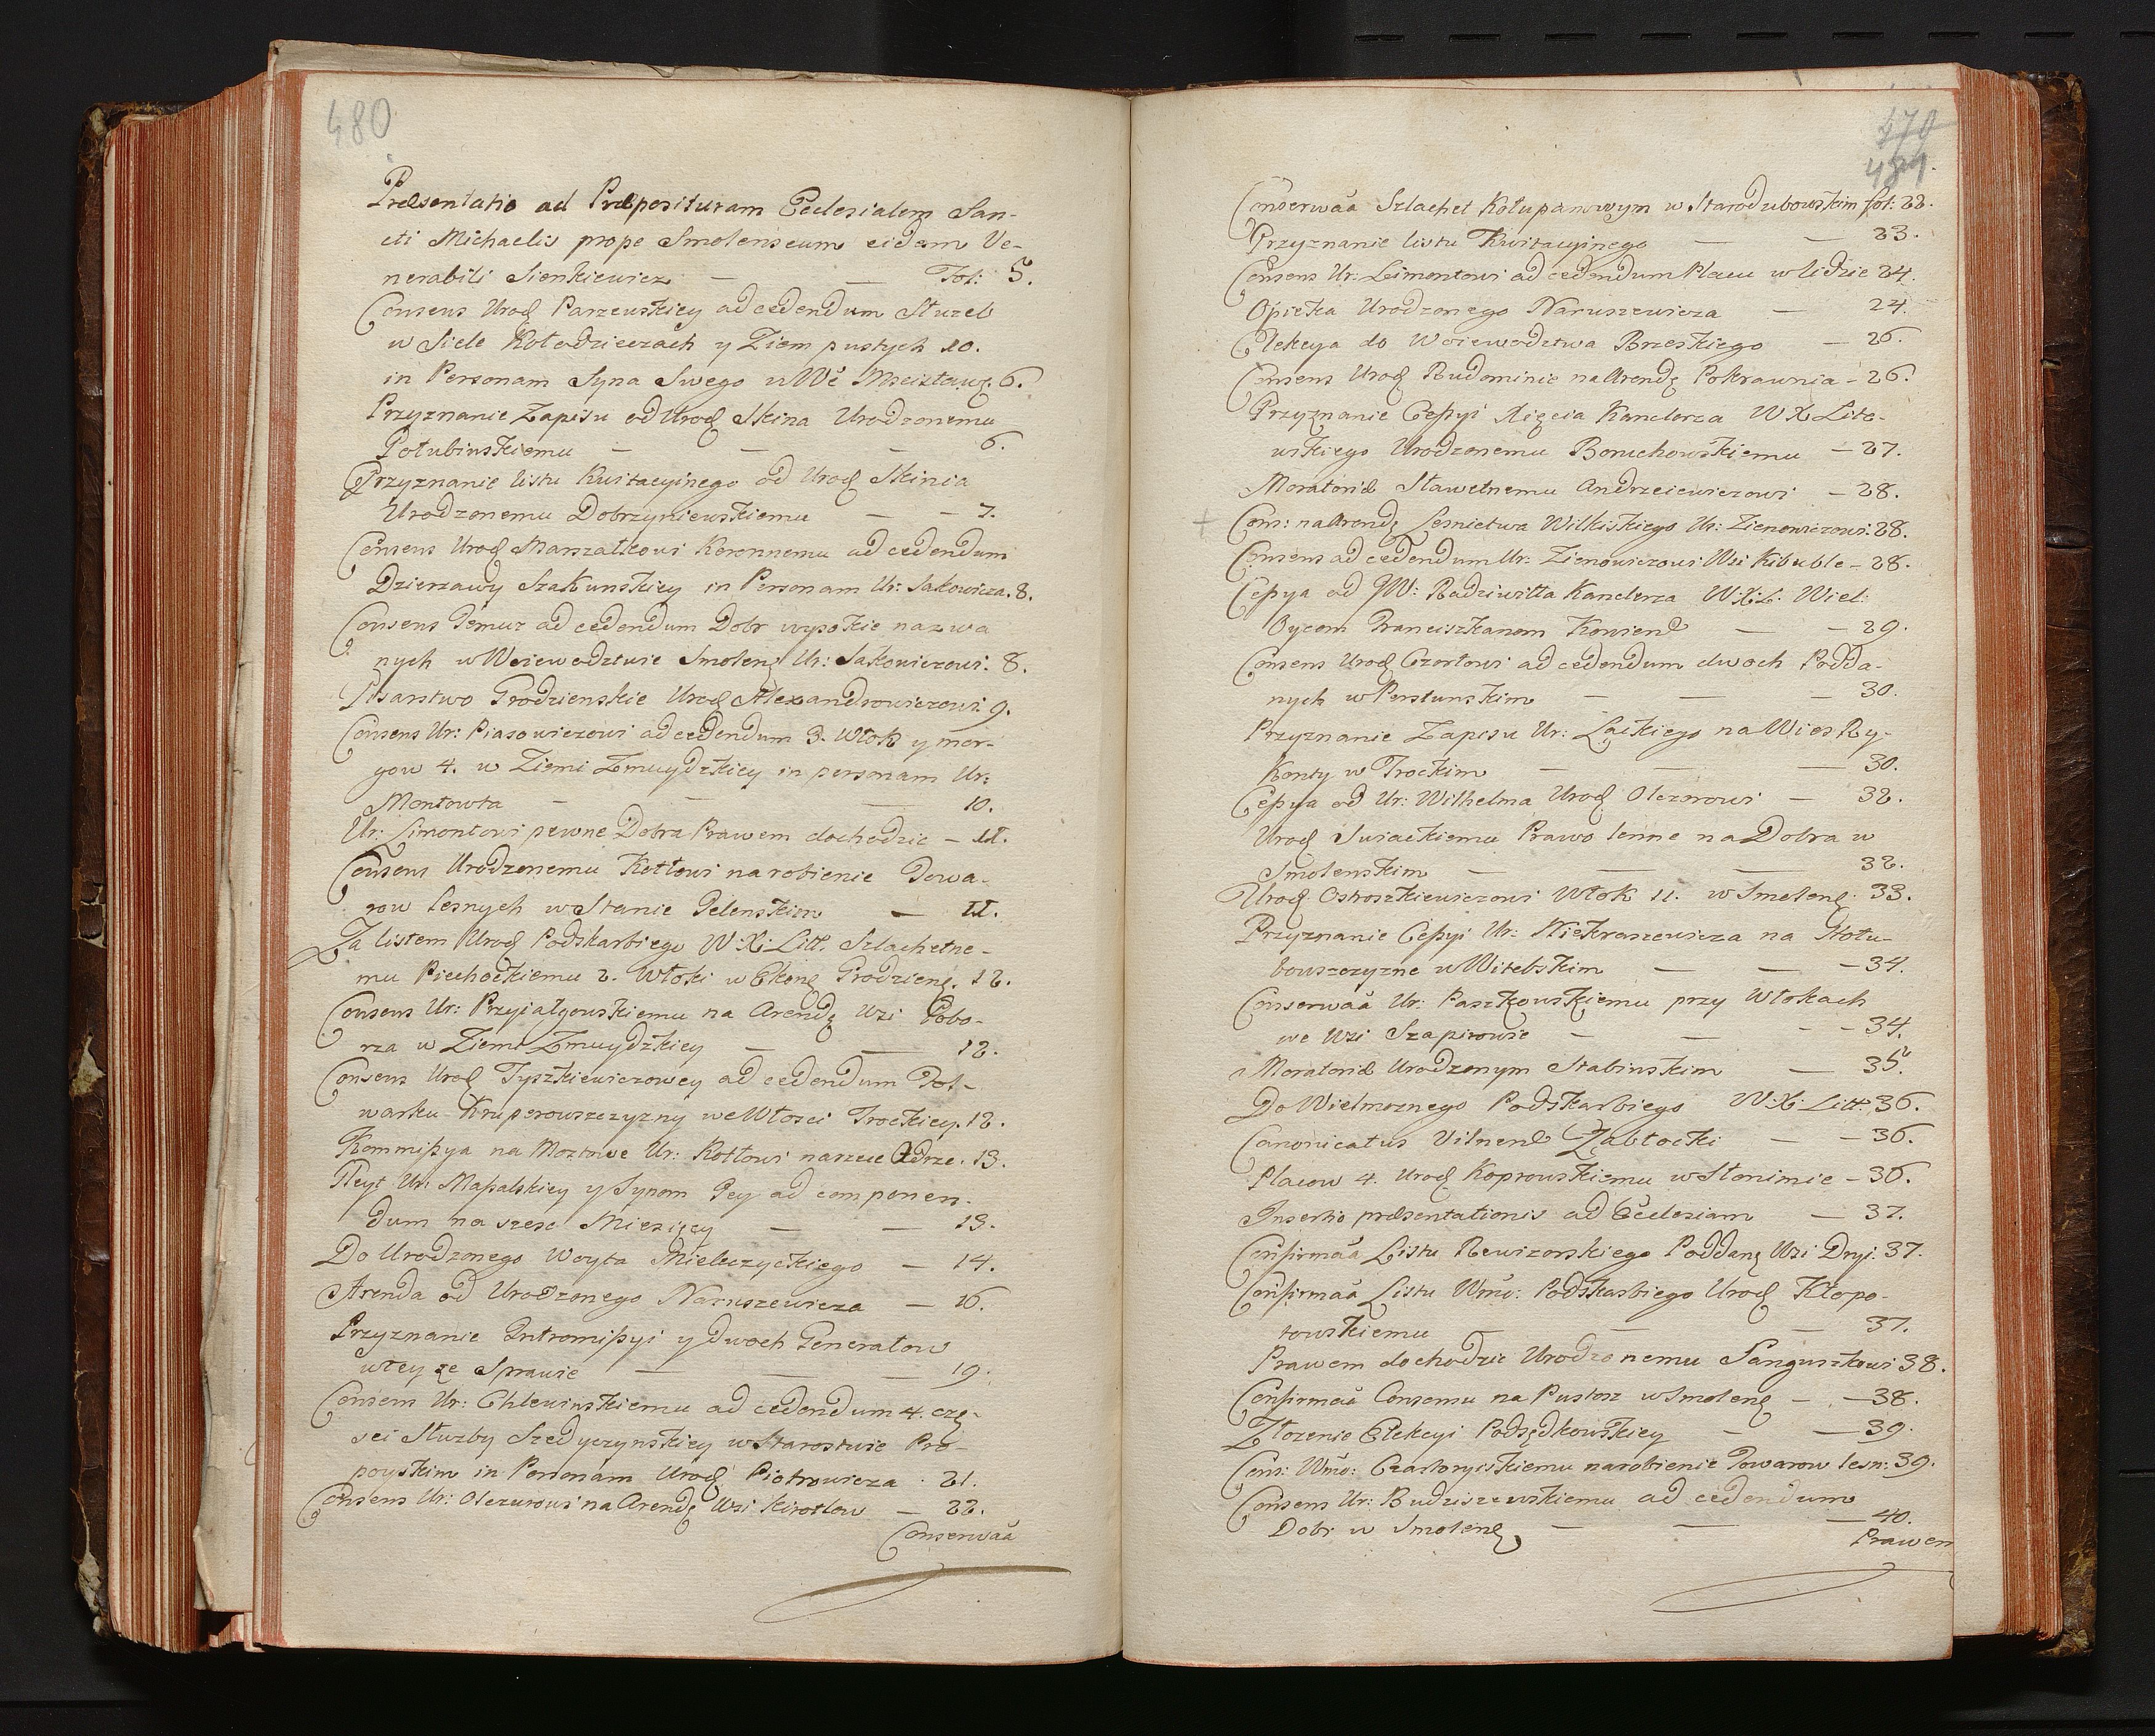 480
Præsentatio ad Præposituram Ecclesialem San-
cti Michaelis prope Smolenscum eidem Ve-
nerabili Sienkiewicz — — Fol: 5.
Consens Urodz Parzewskiey ad cedendum Służeb
w Siele Kołodzieczach y Ziem pustych 10.
in Personam Syna Swego w Wě Mscisławs. 6.
Przyznanie Zapisu od Urodz Skina Urodzonemu
Połubinskiemu — — — 6.
Przyznanie listu Kwitacyinego od Urodz Skinia
Urodzonemu Dobrzyniewskiemu — — 7.
Consens Urodz Marszałkowi Koronnemu ad cedendum
Dzierzawy Szakunskiey in Personam Ur: Sakowicza. 8.
Consens Jemuz ad cedendum Dobr wysokie nazwa
nych w Woiewodztwie Smolens Ur: Sakowiczowi. 8.
Pisarstwo Grodzienskie Urodz Alexandrowiczowi 9.
Consens Ur: Piasowiczowi ad cedendum 3. Włok y mor-
gow 4. w Ziemi Zmuydzkiey in personam Ur:
Montowta — — — 10.
Ur: Limontowi pewne Dobra Prawem dochodzic — 11.
Consens Urodzonemu Kotłowi na robienie Towa-
row lesnych w Stanie Jelenskim — 11.
Za listem Urodz Podskarbiego W: X: Litt. Szlachetne-
mu Piechockiemu 2. Włoki w Ekonz Grodziens. 12.
Consens Ur: Przyiałgowskiemu na Arendę Wsi Pobo-
rza w Ziemi Zmuydzkiey — — 12.
Consens Urodz Tyszkiewiczowey ad cedendum Fol-
warku Kruperowszczyzny we Włosci Trockiey. 12.
Kommissya na Moztowe Ur: Kotłowi na rzece Odrze. 13.
Gleyt Ur: Massalskiey y Synom Jey ad componen-
dum na szesc Miesięcy — — 13.
Do Urodzonego Woyta Mieleczyckiego — 14.
Arenda od Urodzonego Naruszewicza — 16.
Przyznanie Intromissyi y dwoch Generałow
w tey ze Sprawie — — — 19.
Consens Ur: Chlewinskiemu ad cedendum 4. czę-
sci Służby Szedyczynskiey w Starostwie Pro-
poyskim in Personam Urodz Piotrowicza . 21.
Consens Ur: Olezurowi na Arendę Wsi Kirotłow — 22.
Conserwaã
470
481.
Conserwaã Szlachet Kołupanowym w Starodubowskim fol: 22.
Przyznanie listu Kwitacyinego — — 23.
Consens Ur: Limontowi ad cedendum Placu w Lidzie 24.
Opieka Urodzonego Naruszewicza — 24.
Elekcya do Woiewodztwa Brzeskiego — 26.
Consens Urodz Rudominie na Arendę Pokrawnia - 26.
Przyznanie Cessyi Xięcia Kanclerza W X Lite-
wskiego Urodzonemu Boruchowskiemu — 27.
Moratoriũ Sławetnemu Andrzeiewiczowi — 28.
+ Cons: na Arendę Lesnictwa Wilkiskiego Ur: Zienowiczowi. 28.
Consens ad cedendum Ur: Zienowiczowi Wsi Kibuble - 28.
Cessya od JW: Radziwiłła Kanclerza W X: L: Wiel:
Oycom Franciszkanom Kowiens — — 29.
Consens Urodz Czortowi ad cedendum dwoch Podda-
nych w Perstunskim — — — 30.
Przyznanie Zapisu Ur: Lackiego na Wies Ry-
konty w Trockim — — — 30.
Cessya od Ur: Wilhelma Urodz Olezorowi — 32.
Urodz Suiackiemu Prawo lenne na Dobra w
Smolenskim — — — 32.
Urodz Ostroszkiewiczowi Włok 11. w Smolens. 33.
Przyznanie Cessyi Ur: Niekraszewicza na Hołu-
bowszczyzne w Witebskim — — — 34.
Conserwaã Ur: Paszkowskiemu przy Włokach
we Wsi Szapirowie — — — 34.
Moratoriũ Urodzonym Słabinskim — 35.
Do Wielmoznego Podskarbiego W: X: Litt. 36.
Canonicatus Vilnens Zabłocki — — 36.
Placow 4. Urodz Koprowskiemu w Słonimie — 36.
Insertio præsentationis ad Ecclesiam — 37.
Confirmaã Listu Rewizorskiego Poddans Wsi Dryi. 37.
Confirmaã Listu Wmõ: Podskarbiego Urodz Kłopo-
towskiemu — — — 37.
Prawem dochodzic Urodzonemu Sanguszkowi 38.
Confirmaã Consensu na Pustosz w Smolens — — 38.
Złozenie Elekcyi Podsędkowskiey — — 39.
Cons: Wmõ: Czartoryiskiemu na robienie Towarow lesn: 39.
Consens Ur: Budziszewskiemu ad cedendum
Dobr w Smolens — — — 40.
Prawem